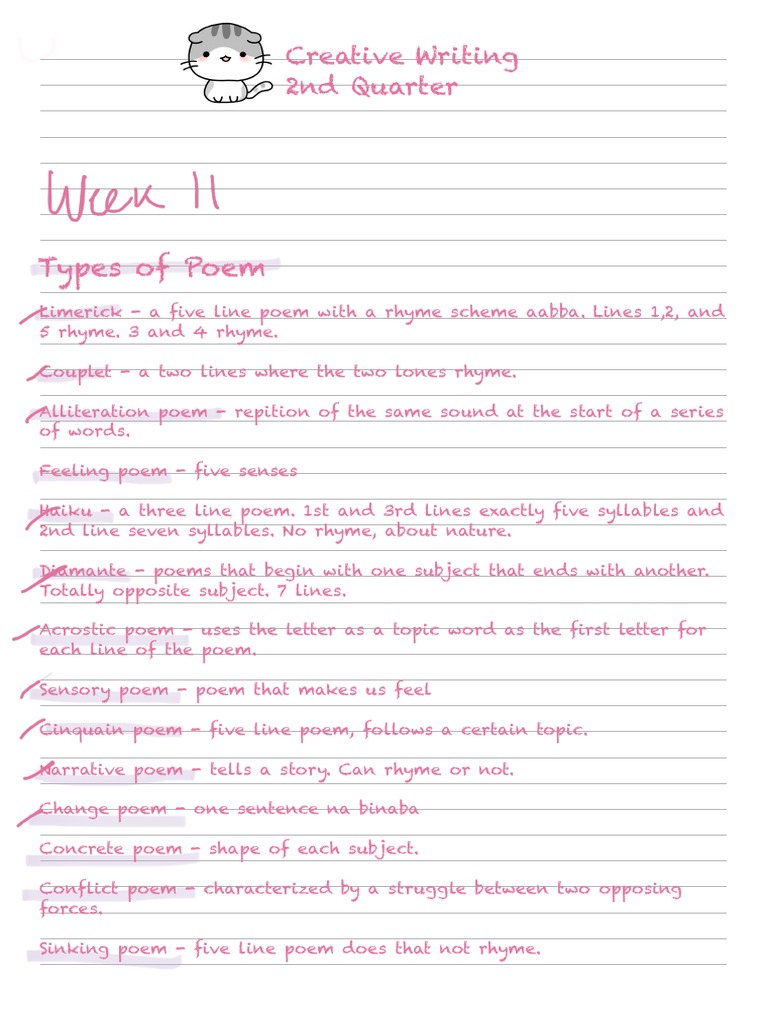 Creative Writing
2nd Quarter
Week 11
Types of Poem
Limerick - a five line poem with a rhyme scheme aabba. Lines 1,2, and
5 rhyme. 3 and 4 rhyme.
Couplet - a two lines where the two lones rhyme.
Alliteration poem - repition of the same sound at the start of a series
of words.
Feeling poem - five senses
Haiku - a three line poem. 1st and 3rd lines exactly five syllables and
2nd line seven syllables. No rhyme, about nature.
Diamante - poems that begin with one subject that ends with another.
Totally opposite subject. 7 lines.
Acrostic poem - uses the letter as a topic word as the first letter for
each line of the poem.
Sensory poem - poem that makes us feel
Cinquain poem - five line poem, follows a certain topic.
Narrative poem - tells a story. Can rhyme or not.
Change poem - one sentence na binaba
Concrete poem - shape of each subject.
Conflict poem - characterized by a struggle between two opposing
forces.
Sinking poem - five line poem does that not rhyme.